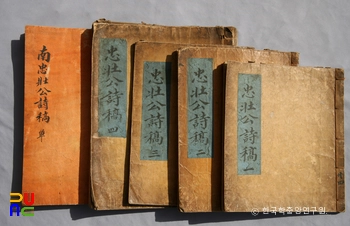 南忠壯公詩稿 單
忠壯公詩稿 四
忠壯公詩稿 三
忠壯公詩稿 二
忠壯公詩稿 一
© 한국학중앙연구원